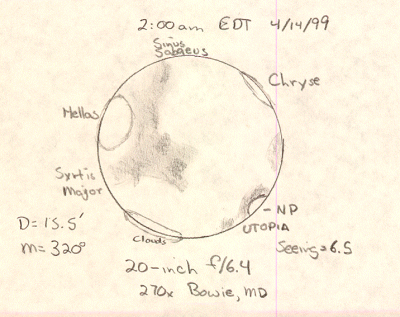 2:00am EDT 4/14/99
Sinus
Sabaeus
Chryse
Hellas
Syrtis
Major
- NP
UTOPIA
D= 15.5'
m= 320°
Clouds
Seeing=6.5
20-inch f/6.4
270x Bowie, MD